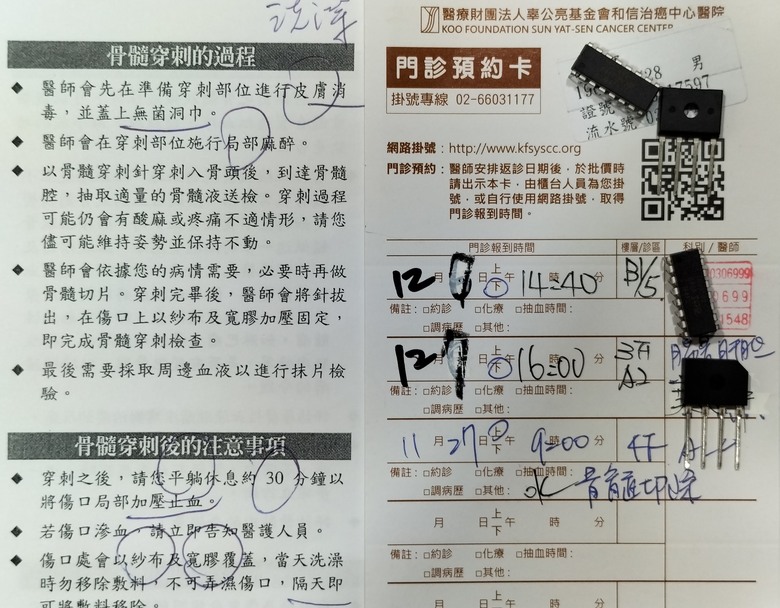 洗澡
骨髓穿刺的過程
◆ 醫師會先在準備穿刺部位進行皮膚消
毒，並蓋上無菌洞巾。
◆ 醫師會在穿刺部位施行局部麻醉。
◆ 以骨髓穿刺針穿刺入骨頭後，到達骨髓
腔，抽取適量的骨髓液送檢。穿刺過程
可能仍會有酸麻或疼痛不適情形，請您
儘可能維持姿勢並保持不動。
◆ 醫師會依據您的病情需要，必要時再做
骨髓切片。穿刺完畢後，醫師會將針拔
出，在傷口上以紗布及寬膠加壓固定，
即完成骨髓穿刺檢查。
◆ 最後需要採取周邊血液以進行抹片檢
驗。
骨髓穿刺後的注意事項
◆ 穿刺之後，請您平躺休息約 30 分鐘以
將傷口局部加壓止血。
◆ 若傷口滲血，請立即告知醫護人員。
◆ 傷口處會以紗布及寬膠覆蓋，當天洗澡
時勿移除敷料，不可弄濕傷口，隔天即
可將敷料移除。
醫療財團法人辜公亮基金會和信治癌中心醫院
KOO FOUNDATION SUN YAT-SEN CANCER CENTER
門診預約卡
掛號專線 02-66031177
男
證號
流水號
網路掛號：http://www.kfsyscc.org
門診預約：醫師安排返診日期後，於批價時
請出示本卡，由櫃台人員為您掛
號，或自行使用網路掛號，取得
門診報到時間。
門診報到時間 樓層/診區 科別/醫師
12月 日上下午 14:40 B1/5
0306999
備註：□約診 □化療 □抽血時間：
□調病歷 □其他：
0699
1548
12月 日上下午 16:00 A2
備註：□約診 □化療 □抽血時間：
□調病歷 □其他：
11月27日上下午 9:00 4F
備註：□約診 □化療 □抽血時間：
□調病歷 □其他：
月 日上下午 時 分
備註：□約診 □化療 □抽血時間：
□調病歷 □其他：
月 日上下午 時 分